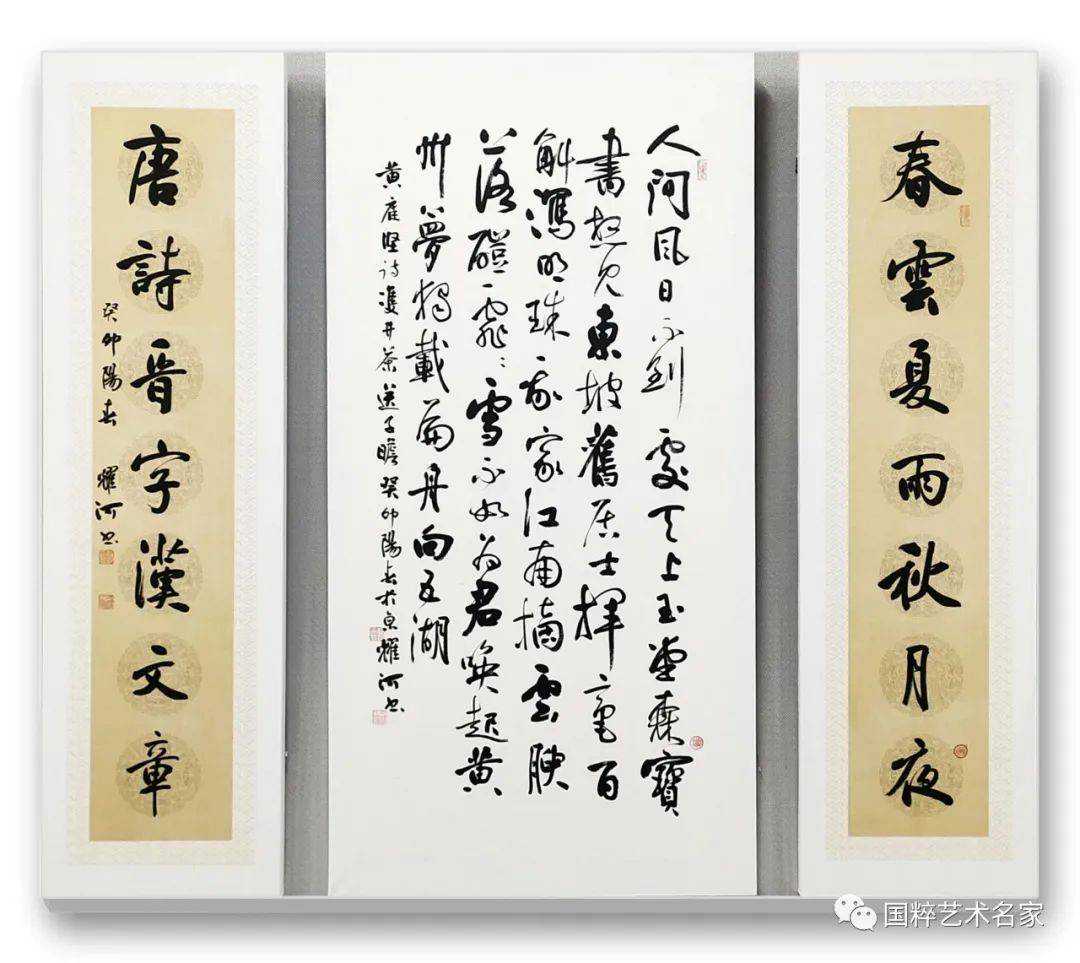 春雲夏雨秋月夜
人间風日不到處天上玉堂森寶
書想見東坡舊居士揮毫百
斛瀉明珠我家江南摘雲腴
落磑霏〻雪不如为君喚起黄
州夢獨載扁舟向五湖
黄庭堅诗雙井茶送子瞻癸卯陽春於京耀河书
唐詩晋字漢文章
癸卯陽春 耀河书
国粹艺术名家